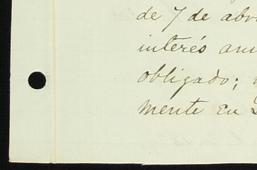 de 7 de abr
interés an
obligado;
mente en